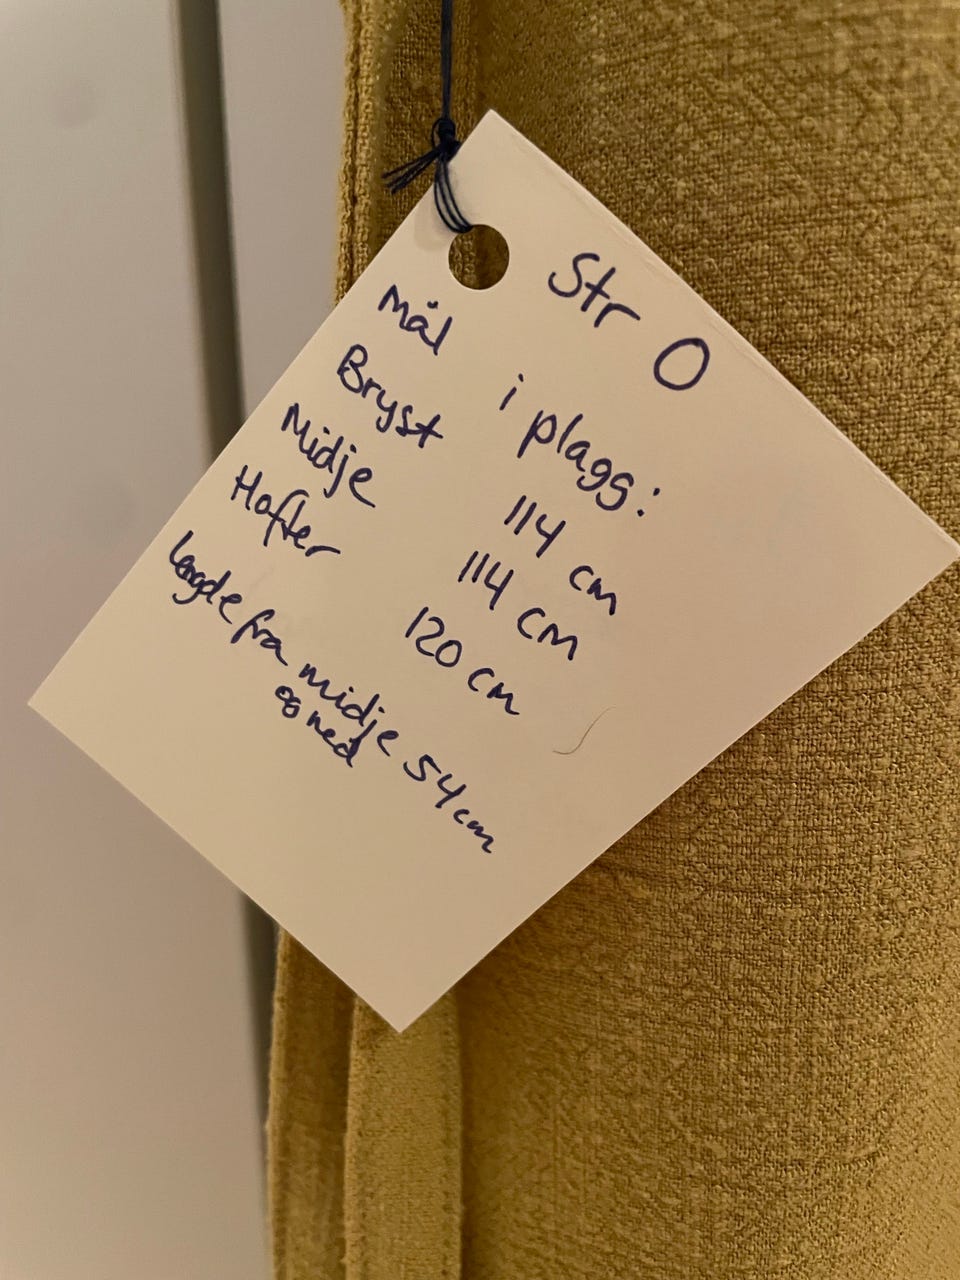 Str O
Mål i plagg:
Bryst 114 cm
Midje 114 cm
Hofter 120 cm
Lengde fra midje 54 cm
og ned